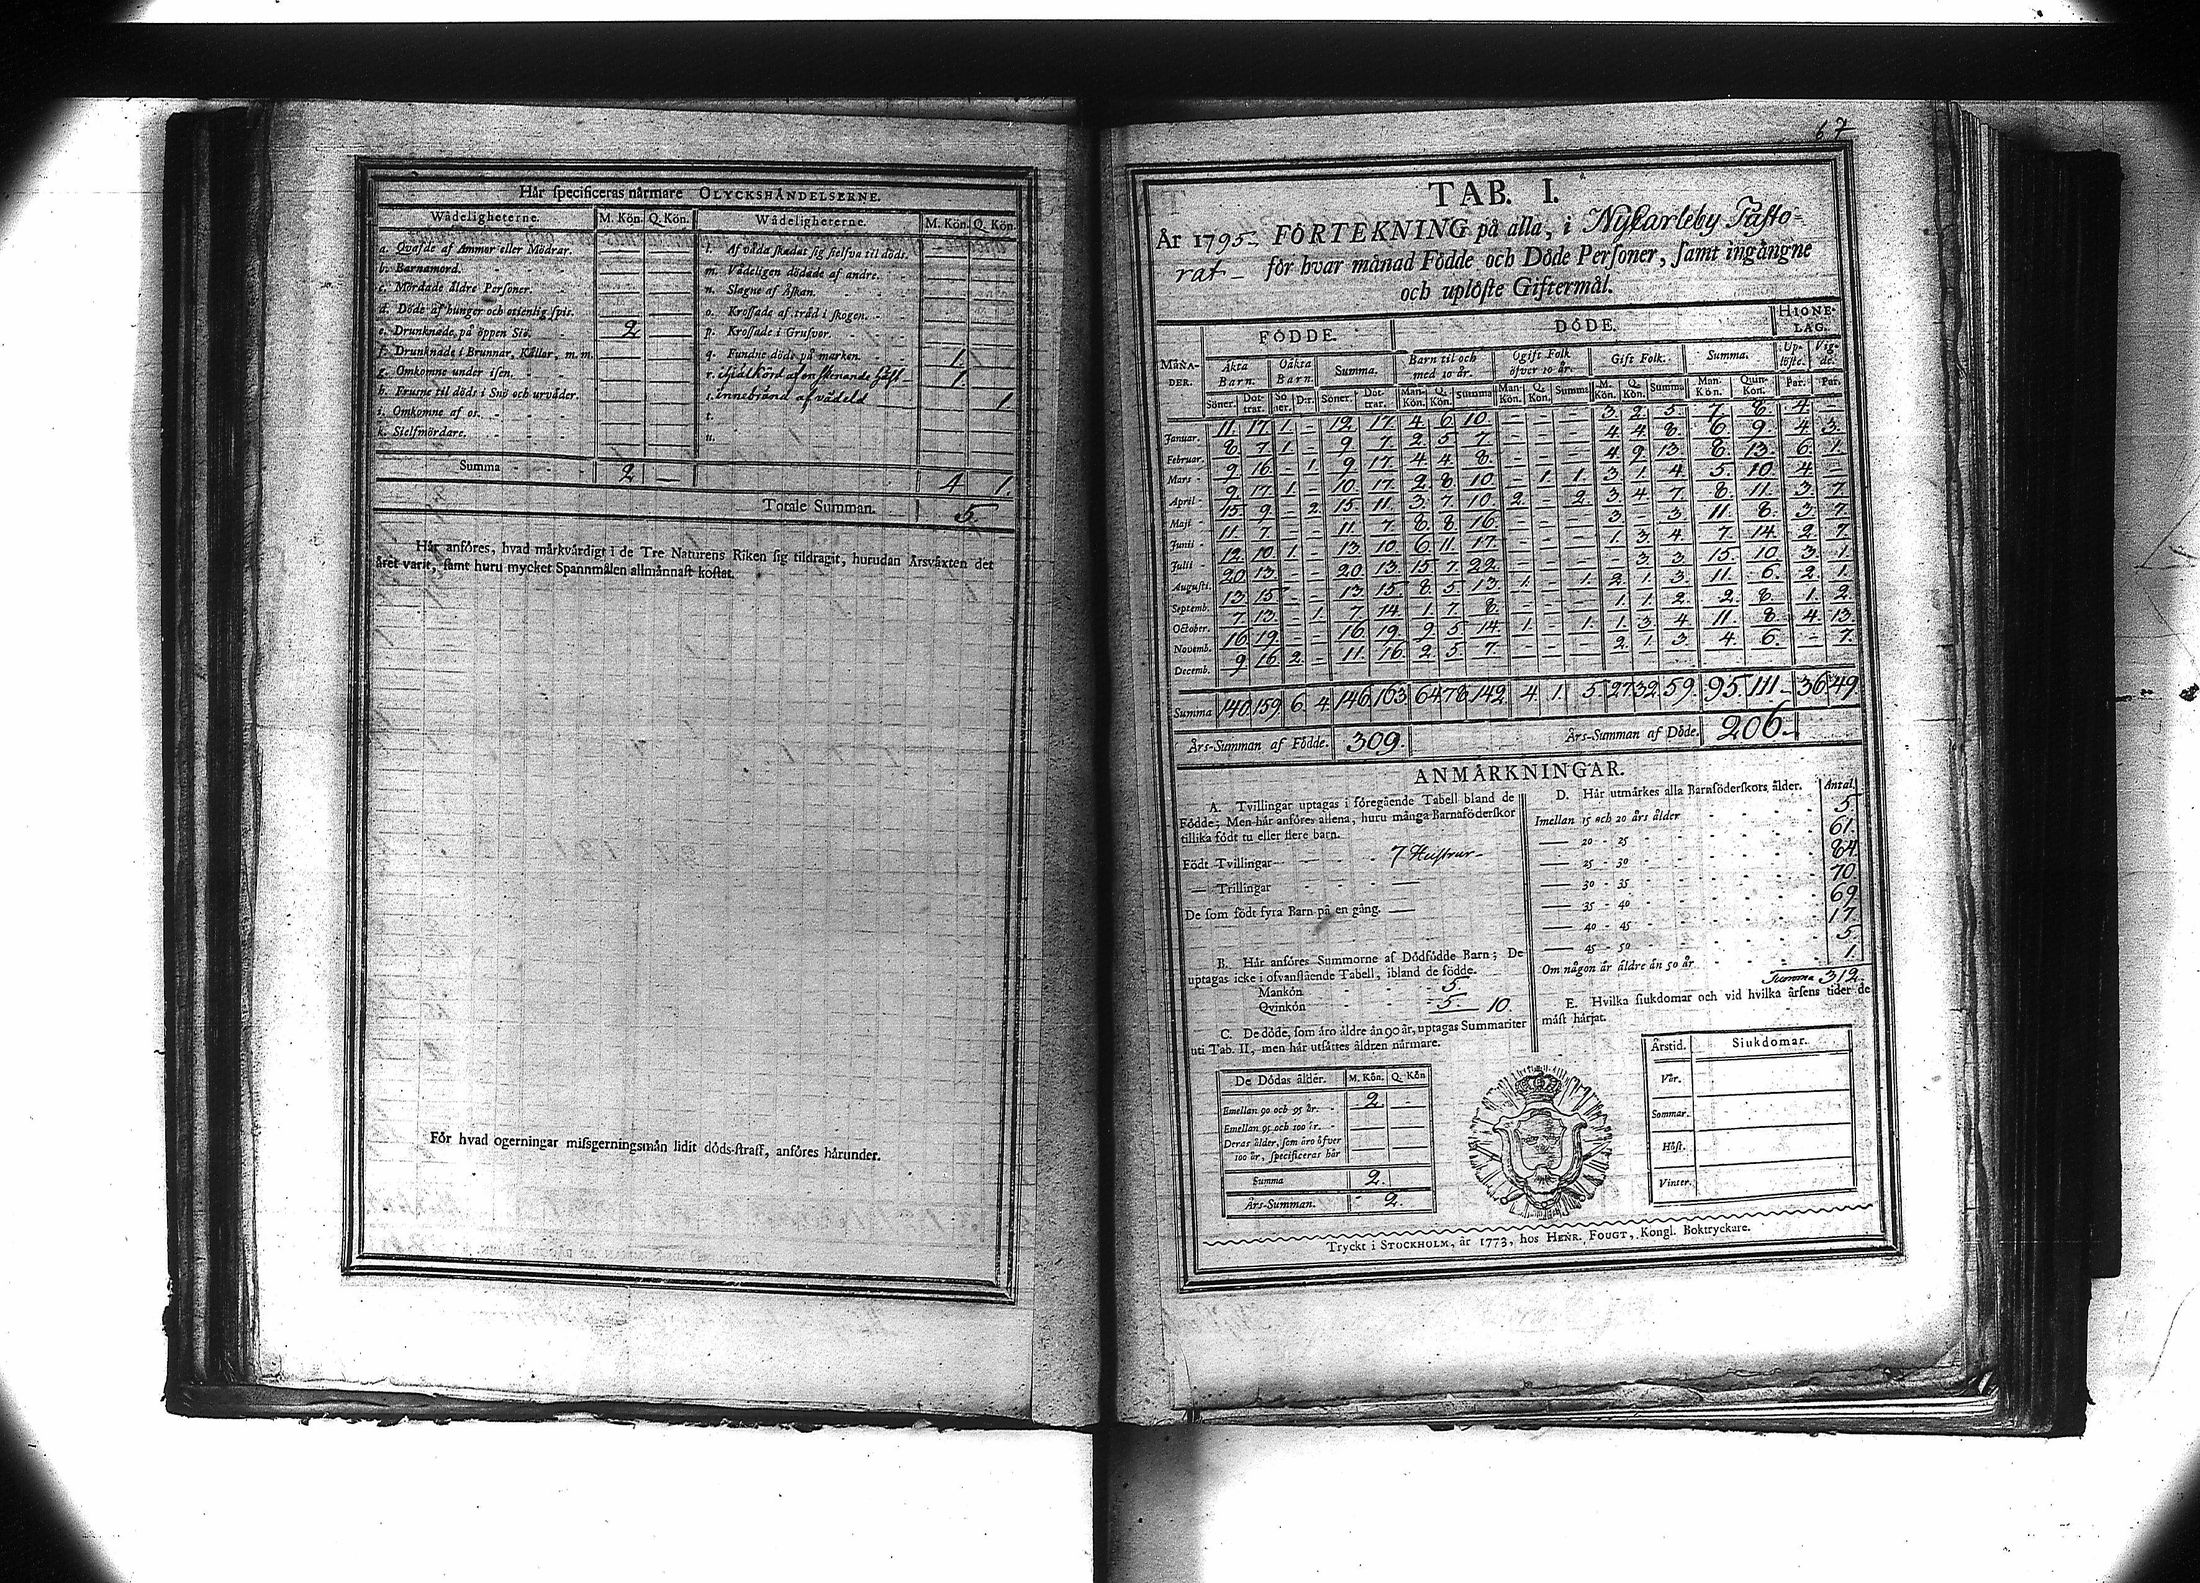 Hår specificeras nårmare OLYCKSHÅNDELSERNE.
Wådeligheterne. M. Kön. Q. Kön. Wådeligheterne. M. Kön. Q. Kön.
a. Qvafde af Ammor eller Mödrar. — — l. Af våda skadat sig sielfva til döds. — —
b. Barnamord. — — m. Vådeligen dödade af andre. — —
c. Mördade åldre Personer. — — n. Slagne af Åskan. — —
d. Döde af hunger och otienlig spis. — — o. Krossade af tråd i skogen. — —
e. Drunknade på öppen Siö. 2 — p. Krossade i Grufvor. — —
f. Drunknade i Brunnar, Kållor, m. m. — — q. Fundne döde på marken. 1. —
g. Omkomne under isen. — — r. ihjälkörd af en skenande häst 1 —
h. Frusne til döds i Snö och urvåder. — — s. innebränd af vådeld — 1.
i. Omkomne af os. — — t.
k. Sielfmördare. — — u.
Summa 2 — 4 1.
Totale Summan. 5.
Hår anföres, hvad mårkvårdigt i de Tre Naturens Riken sig tildragit, hurudan Årsvåxten det
året varit, samt huru mycket Spannmålen allmånnast kostat.
För hvad ogerningar missgerningsmån lidit döds-straff, anföres hårunder.
67
TAB. I.
År 1795. FÖRTEKNING på alla, i Nykarleby Pasto-
rat — för hvar månad Födde och Döde Personer, samt ingångne
och uplöste Giftermål.
FÖDDE. DÖDE. HIONE-LAG.
MÅNA-DER. Åkta Barn. Oåkta Barn. Summa. Barn til och med 10 år. Ogift Folk öfver 10 år. Gift Folk. Summa. Up-löste. Vig-de.
Söner. Döt-trar. Sö ner. D:r. Söner. Döt-trar. Man-Kön. Q. Kön. Summa Man-Kön. Q. Kön. Summa M. Kön. Q. Kön. Summa Man-Kön. Quin-Kön. Par. Par.
Januar. 11. 17. 1. – 12. 17. 4 6 10 – – – 3. 2. 5. 7 8. 4 –
Februar. 8. 7. 1. – 9. 7. 2. 5 7 – – – 4 4 8. 6 9. 4 3.
Mars - 9 16. – 1. 9 17. 4 4 8 – – – 4 9. 13. 8. 13. 6. 1.
April - 9. 17. 1. – 10. 17. 2 8 10 – 1. 1. 3. 1. 4 5. 10 4. –
Majt - 15. 9. – 2. 15. 11. 3. 7. 10 2. – 2. 3. 4 7. 8. 11. 3. 7.
Junii - 11. 7. – – 11 7. 8. 8 16 – – – 3. – 3 11 8. 3. 7.
Julii - 12. 10 1. – 13. 10. 6 11. 17. – – – 1. 3. 4. 7 14. 2 7.
Augusti. 20 13. – – 20 13. 15 7 22 – – – – 3. 3. 15. 10 3. 1.
Septemb. 13. 15. – – 13. 15. 8. 5 13. 1. – 1. 2. 1. 3. 11. 6. 2. 1.
October. 7 13. – 1. 7 14. 1. 7 8. – – – 1. 1. 2. 2. 8 1. 2.
Novemb. 16 19. – – 16 19. 9 5 14. 1. – 1. 1. 3 4 11. 8. 4. 13.
Decemb. 9 16. 2. – 11. 16. 2. 5. 7. – – – 2. 1. 3. 4 6. – 7.
Summa 140 159 6 4 146 163 64 78 142 4 1. 5. 27 32. 59. 95. 111 36 49
Års-Summan af Födde. 309. Års-Summan af Döde. 206.
ANMÅRKNINGAR.
A. Tvillingar uptagas i föregående Tabell bland de
Födde; Men hår anföres allena, huru många Barnaföderskor
tillika födt tu eller flere barn.
Födt Tvillingar 7 Hustrur
— Trillingar —
De som födt fyra Barn på en gång. —
B. Hår anföres Summorne af Dödfödde Barn; De
uptagas icke i ofvanstående Tabell, ibland de födde.
Mankön 5.
Qvinkön 5. 10.
C. De döde, som åro åldre ån 90 år, uptagas Summariter
uti Tab. II, men hår utsåttes åldren nårmare.
De Dödas ålder. M. Kön. Q. Kön
Emellan 90 och 95 år. 2. -
Emellan 95 och 100 år. — —
Deras ålder, som åro öfver
100 år, specificeras hår — —
Summa 2.
Års-Summan. 2.
D. Hår utmårkes alla Barnföderskors ålder. Antal.
Imellan 15 och 20 års ålder 5
— 20 - 25 61.
— 25 - 30 84
— 30 - 35 70.
— 35 - 40 69.
— 40 - 45 17.
— 45 - 50 5.
Om någon år åldre ån 50 år 1.
Summa 312.
E. Hvilka siukdomar och vid hvilka årsens tider de
måst hårjat.
Årstid. Siukdomar.
Vår.
Sommar.
Höst.
Vinter.
Tryckt i STOCKHOLM, år 1773, hos HENR. FOUGT, Kongl. Boktryckare.